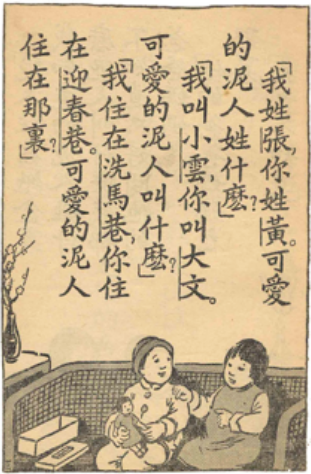 「我姓張，你姓黃。可愛
的泥人姓什麼？」
「我叫小雲，你叫大文。
可愛的泥人叫什麼？」
「我住在洗馬巷，你住
在迎春巷。可愛的泥人
住在那裏？」